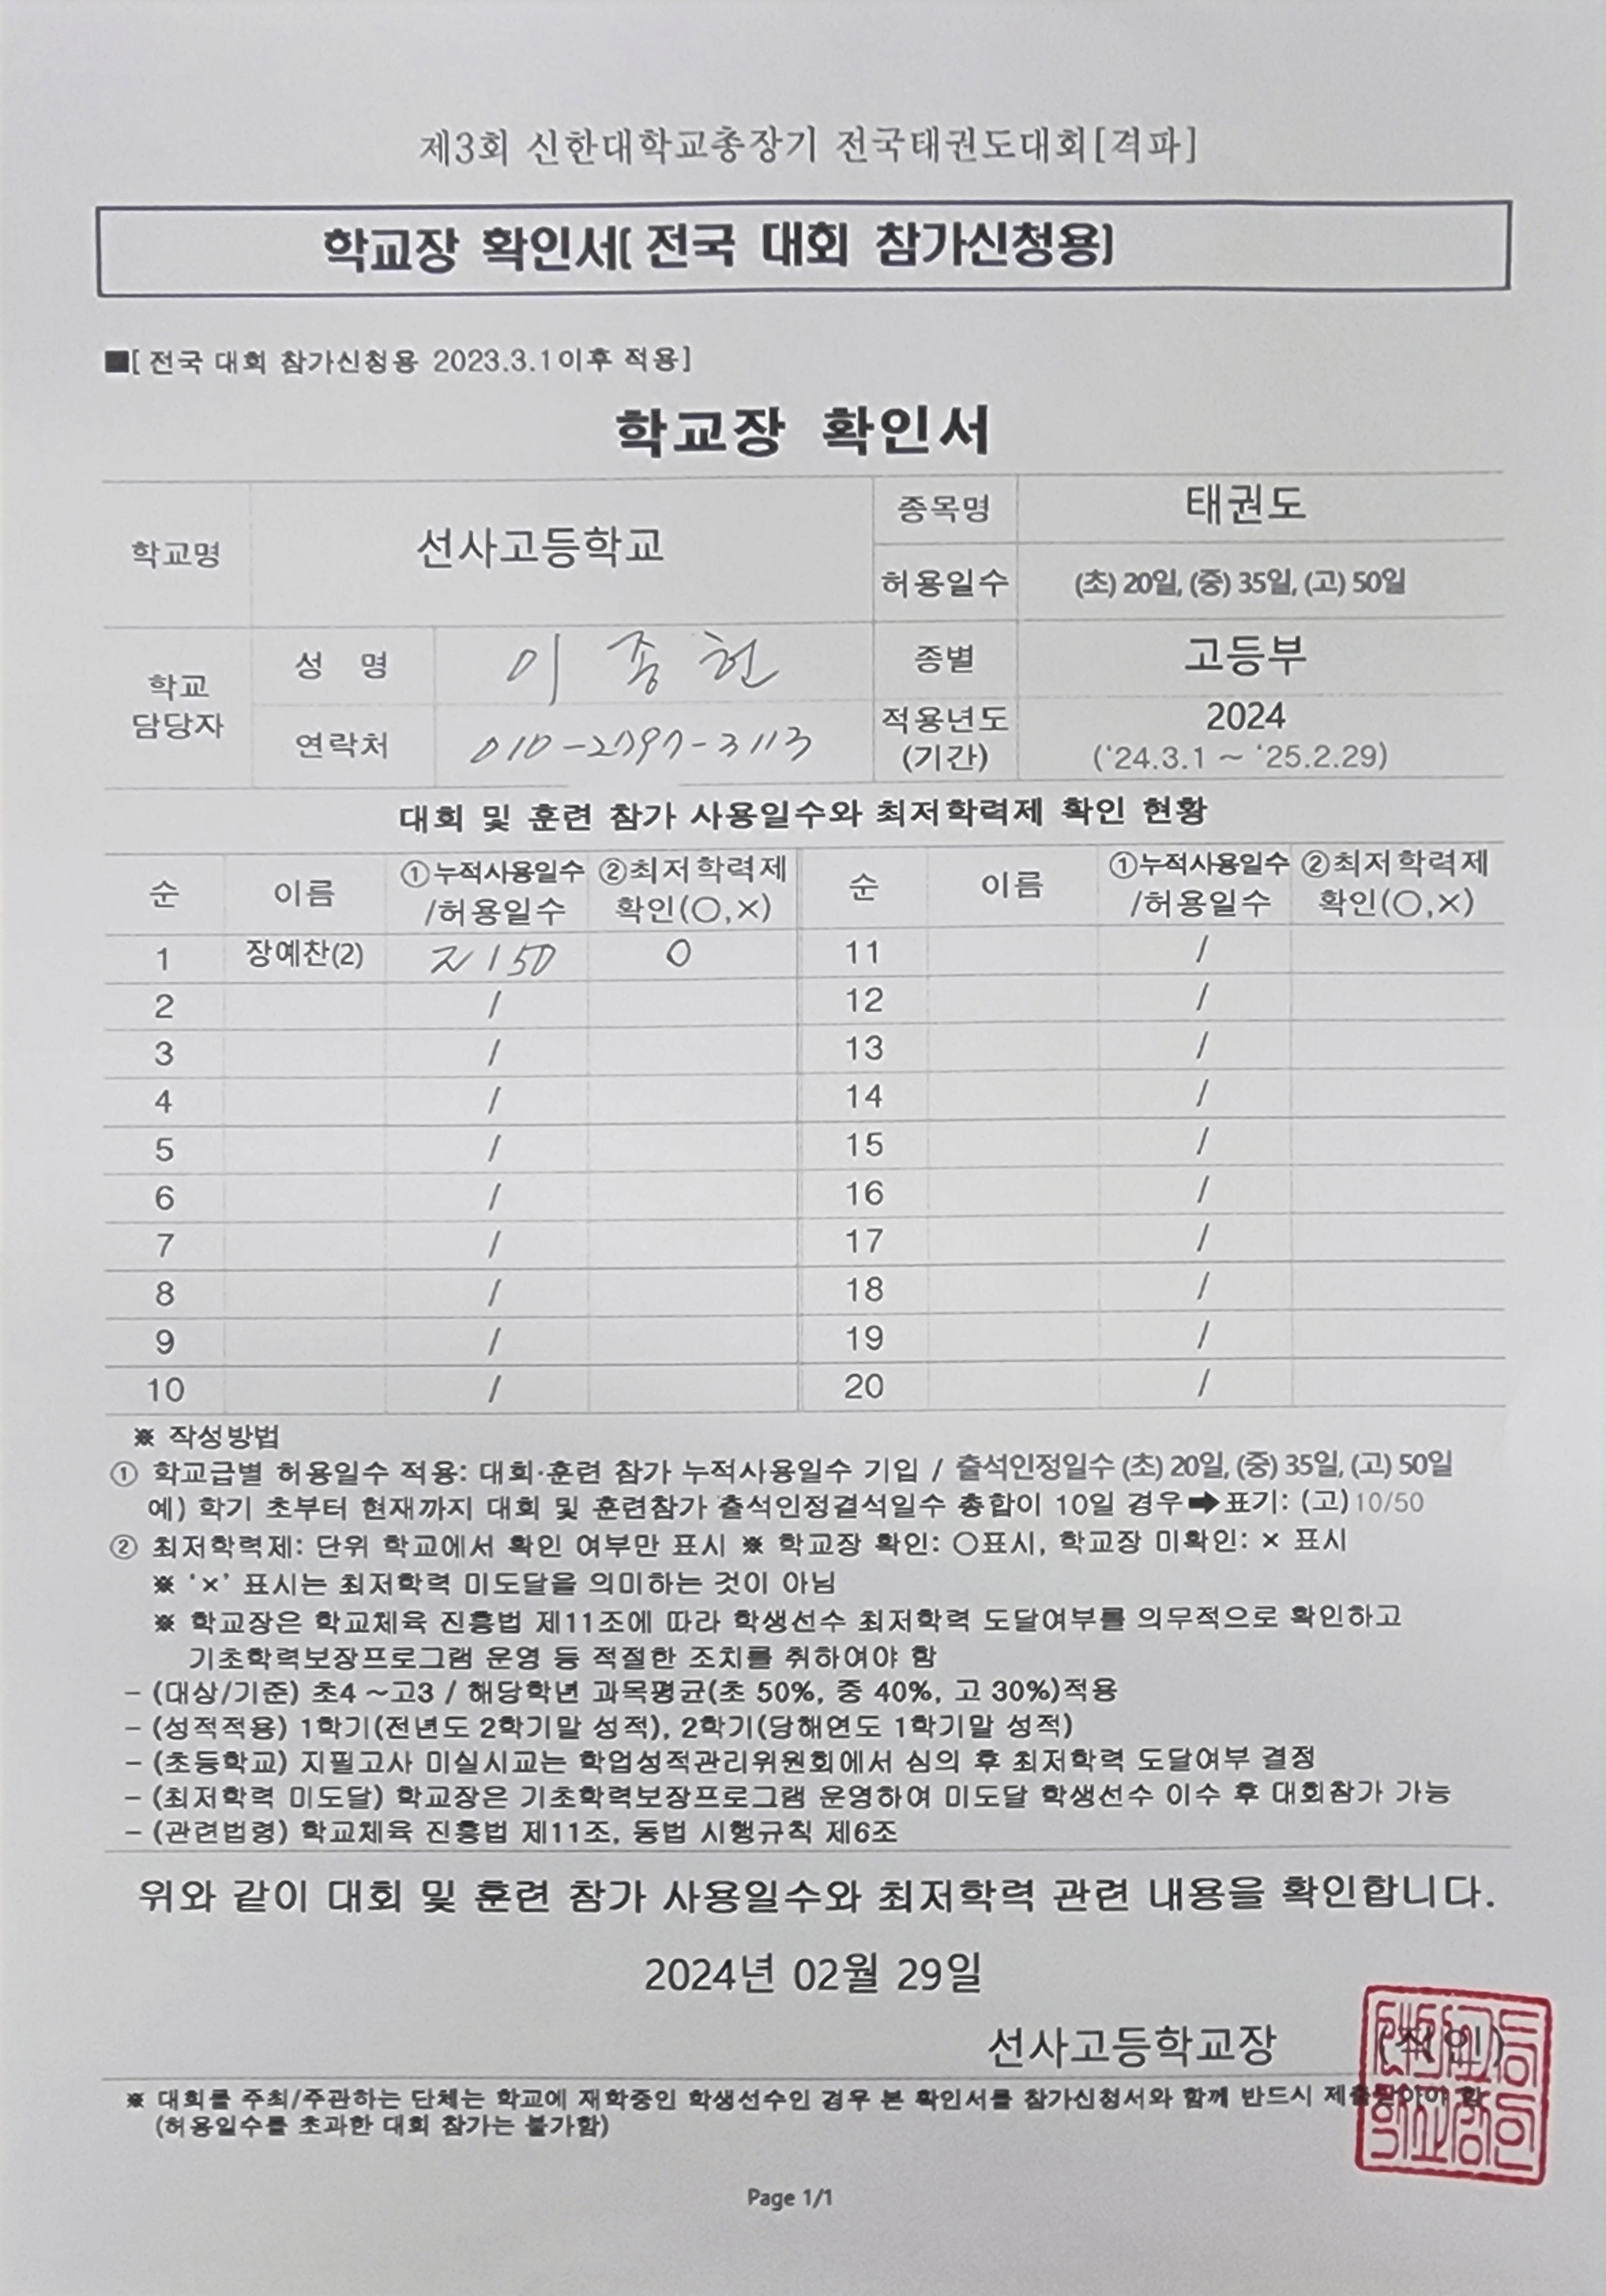 제3회 신한대학교총장기 전국태권도대회[격파]
학교장 확인서[ 전국 대회 참가신청용]
■[ 전국 대회 참가신청용 2023.3.1이후 적용]
학교장 확인서
학교명 선사고등학교 종목명 태권도
허용일수 (초) 20일, (중) 35일, (고) 50일
학교 담당자 성 명 이종현 종별 고등부
연락처 적용년도 (기간) 2024 ('24.3.1 ~ '25.2.29)
대회 및 훈련 참가 사용일수와 최저학력제 확인 현황
순 이름 ①누적사용일수 /허용일수 ②최저학력제 확인(○,×) 순 이름 ①누적사용일수 /허용일수 ②최저학력제 확인(○,×)
1 장예찬(2) / 50 O 11 /
2 / 12 /
3 / 13 /
4 / 14 /
5 / 15 /
6 / 16 /
7 / 17 /
8 / 18 /
9 / 19 /
10 / 20 /
※ 작성방법
① 학교급별 허용일수 적용: 대회·훈련 참가 누적사용일수 기입 / 출석인정일수 (초) 20일, (중) 35일, (고) 50일
예) 학기 초부터 현재까지 대회 및 훈련참가 출석인정결석일수 총합이 10일 경우➡표기: (고)10/50
② 최저학력제: 단위 학교에서 확인 여부만 표시 ※ 학교장 확인: ○표시, 학교장 미확인: × 표시
※ '×' 표시는 최저학력 미도달을 의미하는 것이 아님
※ 학교장은 학교체육 진흥법 제11조에 따라 학생선수 최저학력 도달여부를 의무적으로 확인하고
기초학력보장프로그램 운영 등 적절한 조치를 취하여야 함
– (대상/기준) 초4 ~고3 / 해당학년 과목평균(초 50%, 중 40%, 고 30%)적용
– (성적적용) 1학기(전년도 2학기말 성적), 2학기(당해연도 1학기말 성적)
– (초등학교) 지필고사 미실시교는 학업성적관리위원회에서 심의 후 최저학력 도달여부 결정
– (최저학력 미도달) 학교장은 기초학력보장프로그램 운영하여 미도달 학생선수 이수 후 대회참가 가능
– (관련법령) 학교체육 진흥법 제11조, 동법 시행규칙 제6조
위와 같이 대회 및 훈련 참가 사용일수와 최저학력 관련 내용을 확인합니다.
2024년 02월 29일
선사고등학교장 (직인)
※ 대회를 주최/주관하는 단체는 학교에 재학중인 학생선수인 경우 본 확인서를 참가신청서와 함께 반드시 제출받아야 함
(허용일수를 초과한 대회 참가는 불가함)
Page 1/1